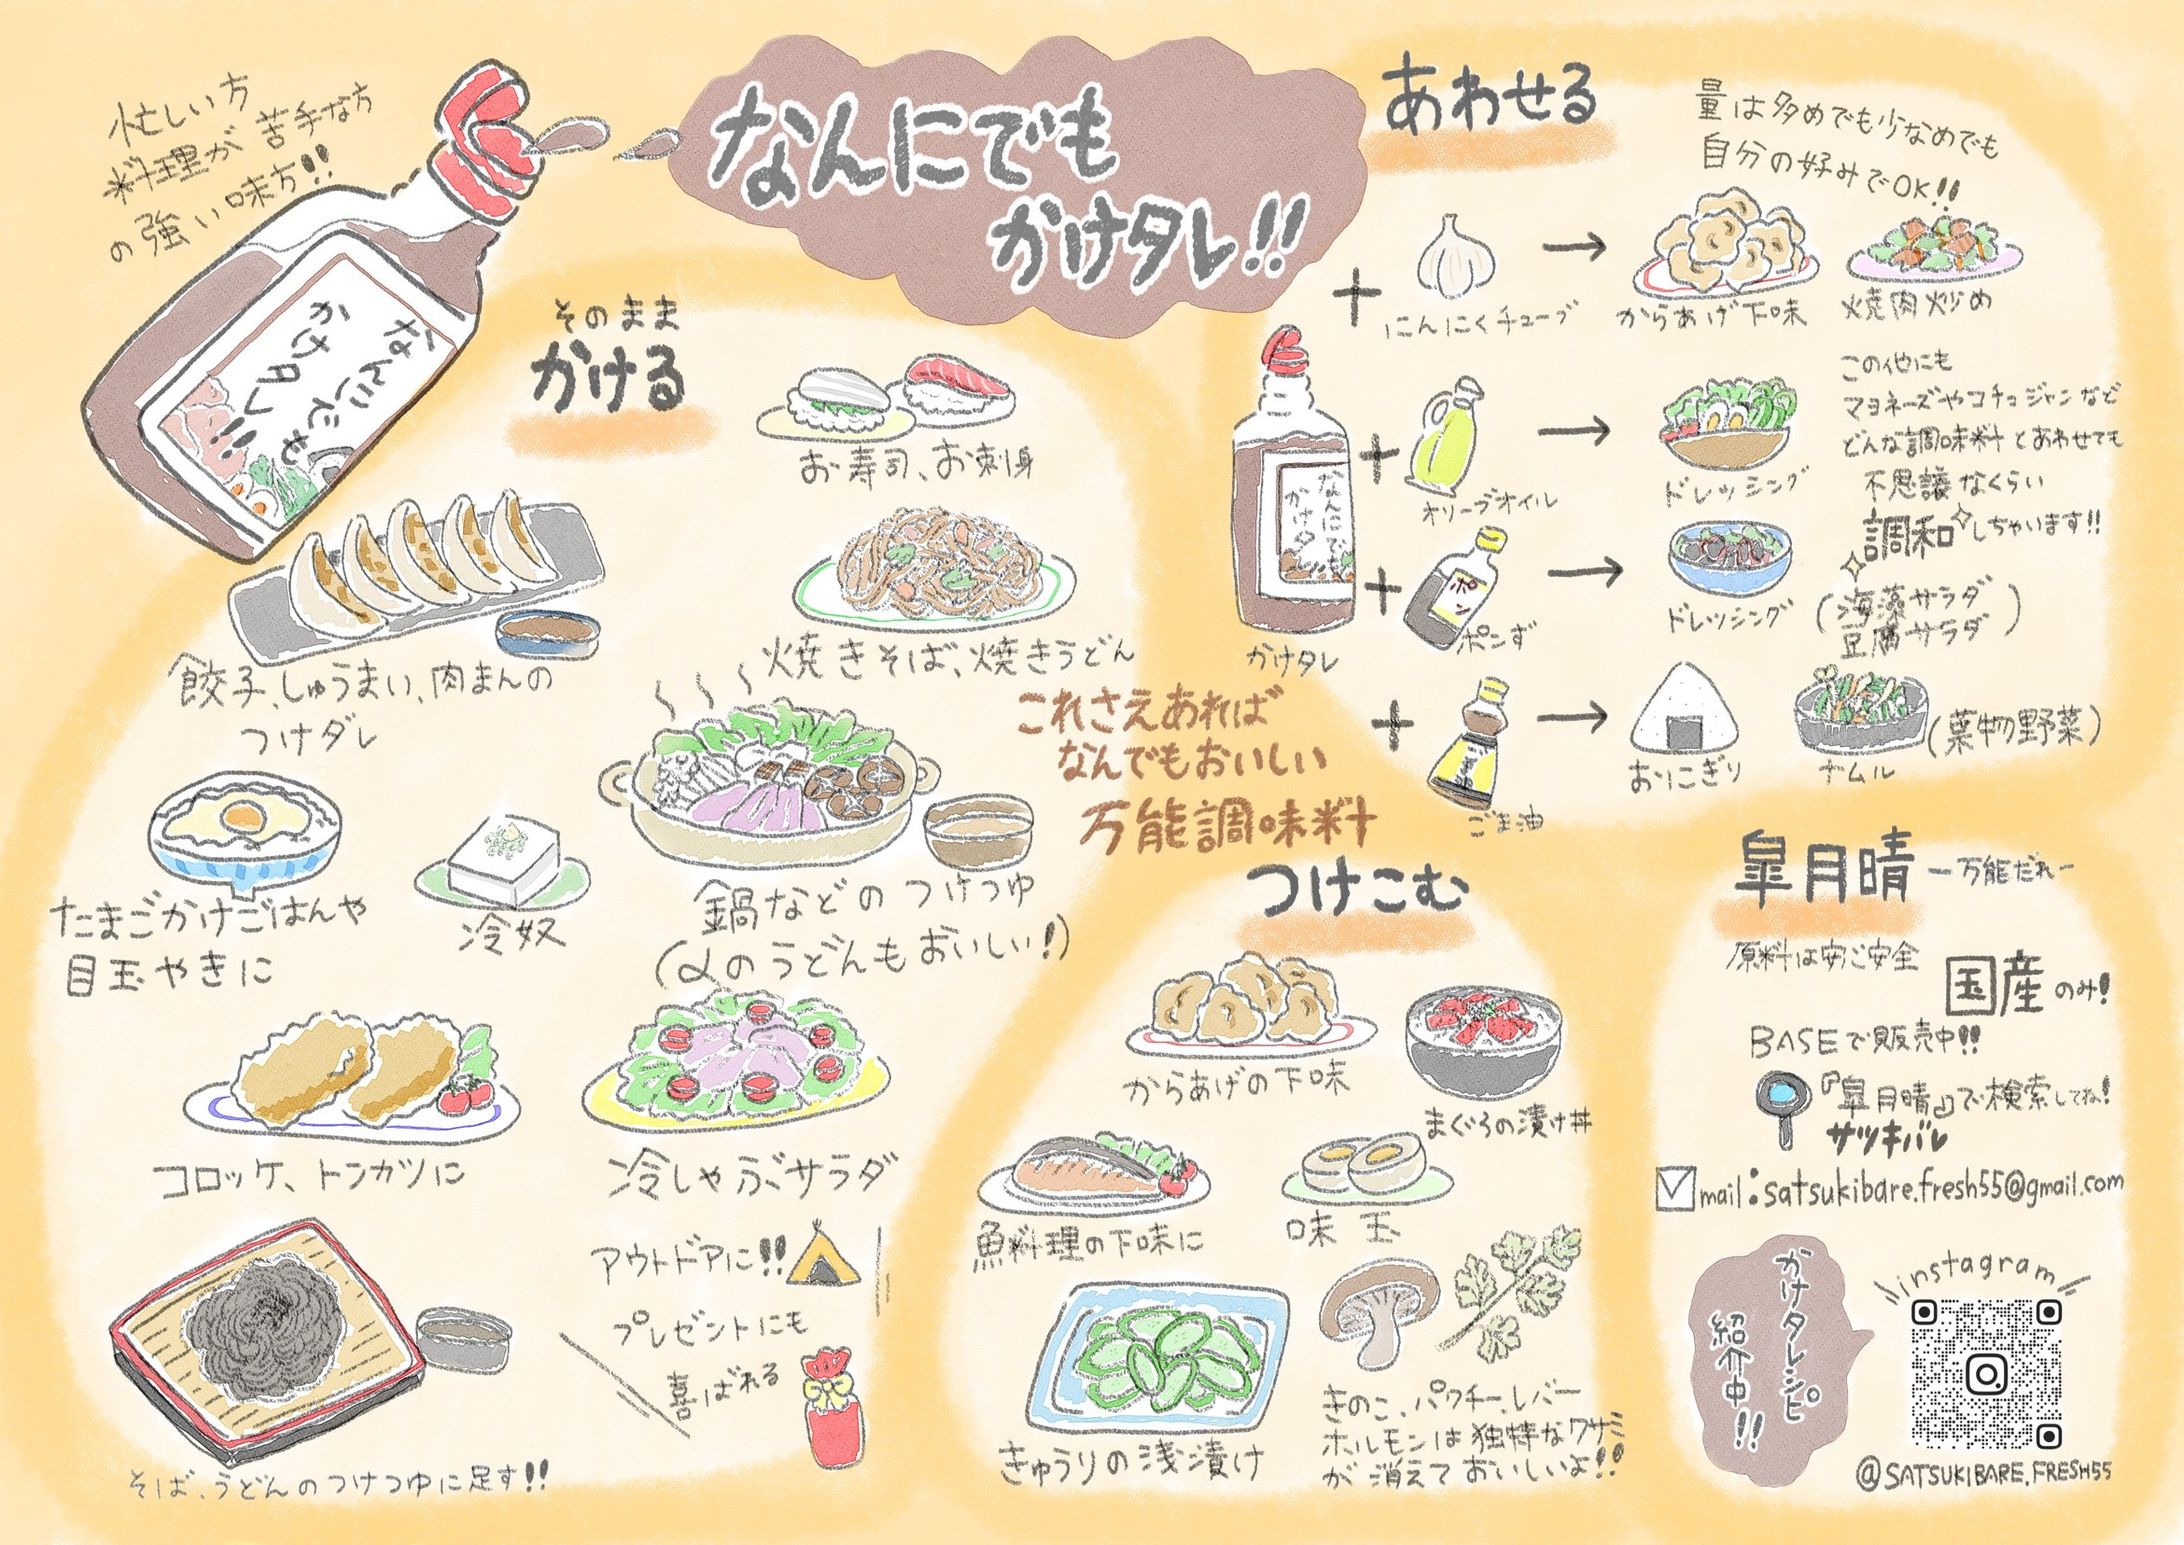 忙しい方
料理が苦手な方
の強い味方!!
なんにでも
かけタレ!!
なんにでも
かけタレ!!
そのまま
かける
お寿司、お刺身
餃子、しゅうまい、肉まんの
つけダレ
焼きそば、焼きうどん
たまごかけごはんや
目玉やきに
冷奴
鍋などのつけつゆ
(〆のうどんもおいしい!)
コロッケ、トンカツに
冷しゃぶサラダ
そば、うどんのつけつゆに足す!!
アウトドアに!!
プレゼントにも
喜ばれる
これさえあれば
なんでもおいしい
万能調味料
あわせる
量は多めでも少なめでも
自分の好みでOK!!
+
にんにくチューブ
→
からあげ下味
焼肉炒め
なんにでも
かけタレ
かけタレ
+
オリーブオイル
→
ドレッシング
+
ポン
ポンず
→
ドレッシング
(海藻サラダ
豆腐サラダ)
+
ごま油
→
おにぎり
ナムル
(葉物野菜)
この他にも
マヨネーズやコチョジャンなど
どんな調味料とあわせても
不思議なくらい
調和しちゃいます!!
つけこむ
からあげの下味
まぐろの漬け丼
魚料理の下味に
味玉
きゅうりの浅漬け
きのこ、パクチー、レバー
ホルモンは独特なクサミ
が消えておいしいよ!!
皐月晴 ー万能だれー
原料は安心安全
国産のみ!
BASEで販売中!!
『皐月晴』で検索してね!
サツキバレ
mail:satsukibare.fresh55@gmail.com
かけタレレシピ
紹介中!!
instagram
@SATSUKIBARE.FRESH55